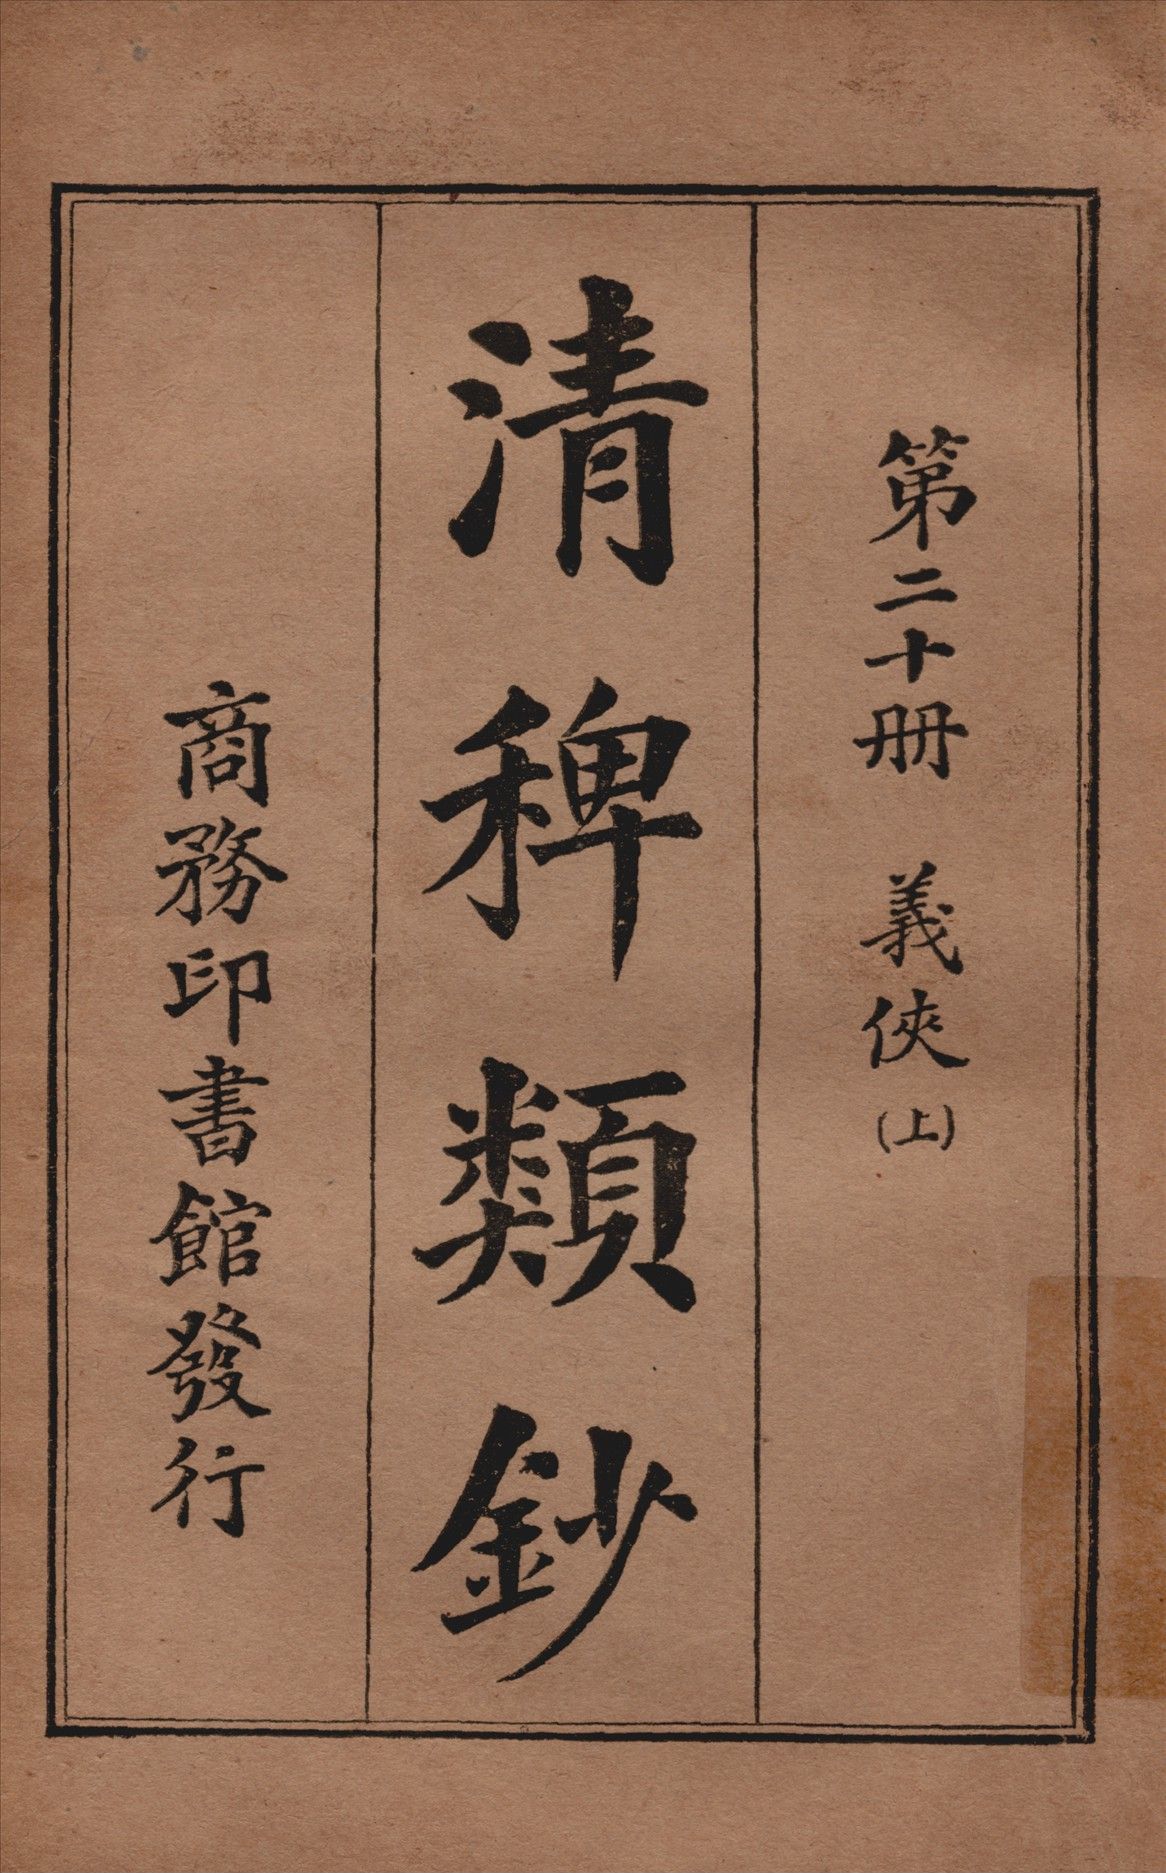 第二十册　義俠(上)
清稗類鈔
商務印書館發行